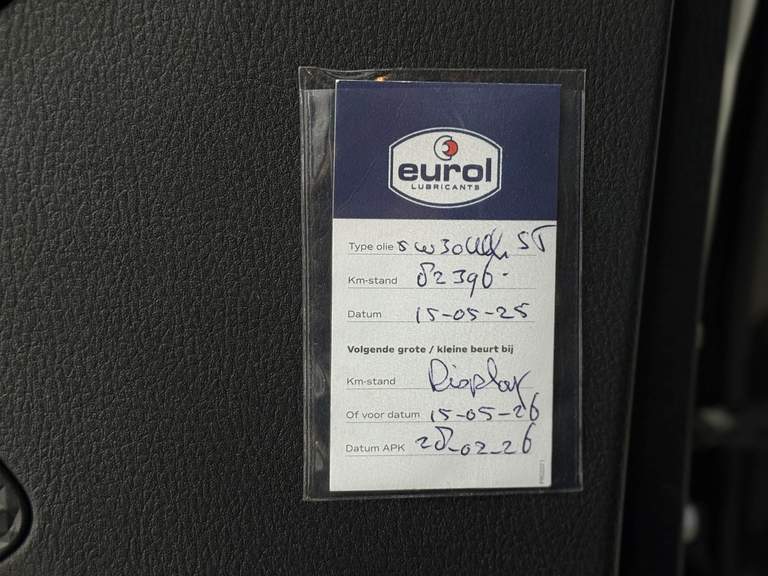 eurol
LUBRICANTS
Type olie 5w30 ST
Km-stand 82396
Datum 15-05-25
Volgende grote / kleine beurt bij
Km-stand Display
Of voor datum 15-05-26
Datum APK 28-02-26